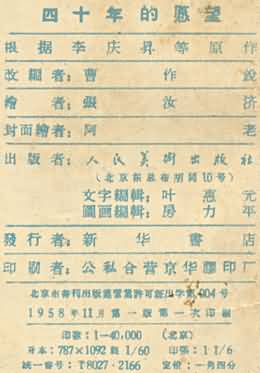 四十年的愿望
根据李庆昇等原作
改編者：曹作銳
繪者：張汝济
封面繪者：阿老
出版者：人民美術出版社
（北京新总布胡同10号）
文字編輯：叶惠元
圖画編輯：房力年
發行者：新华書店
印刷者：公私合营京华膠印厂
北京市書刊出版业营業許可証出字第004号
1958年11月第一版第一次印刷
印数：1—40,000（北京）
开本：787×1092 1/60 印張：1 1/6
統一書号：T8027·2166 定价：一角四分